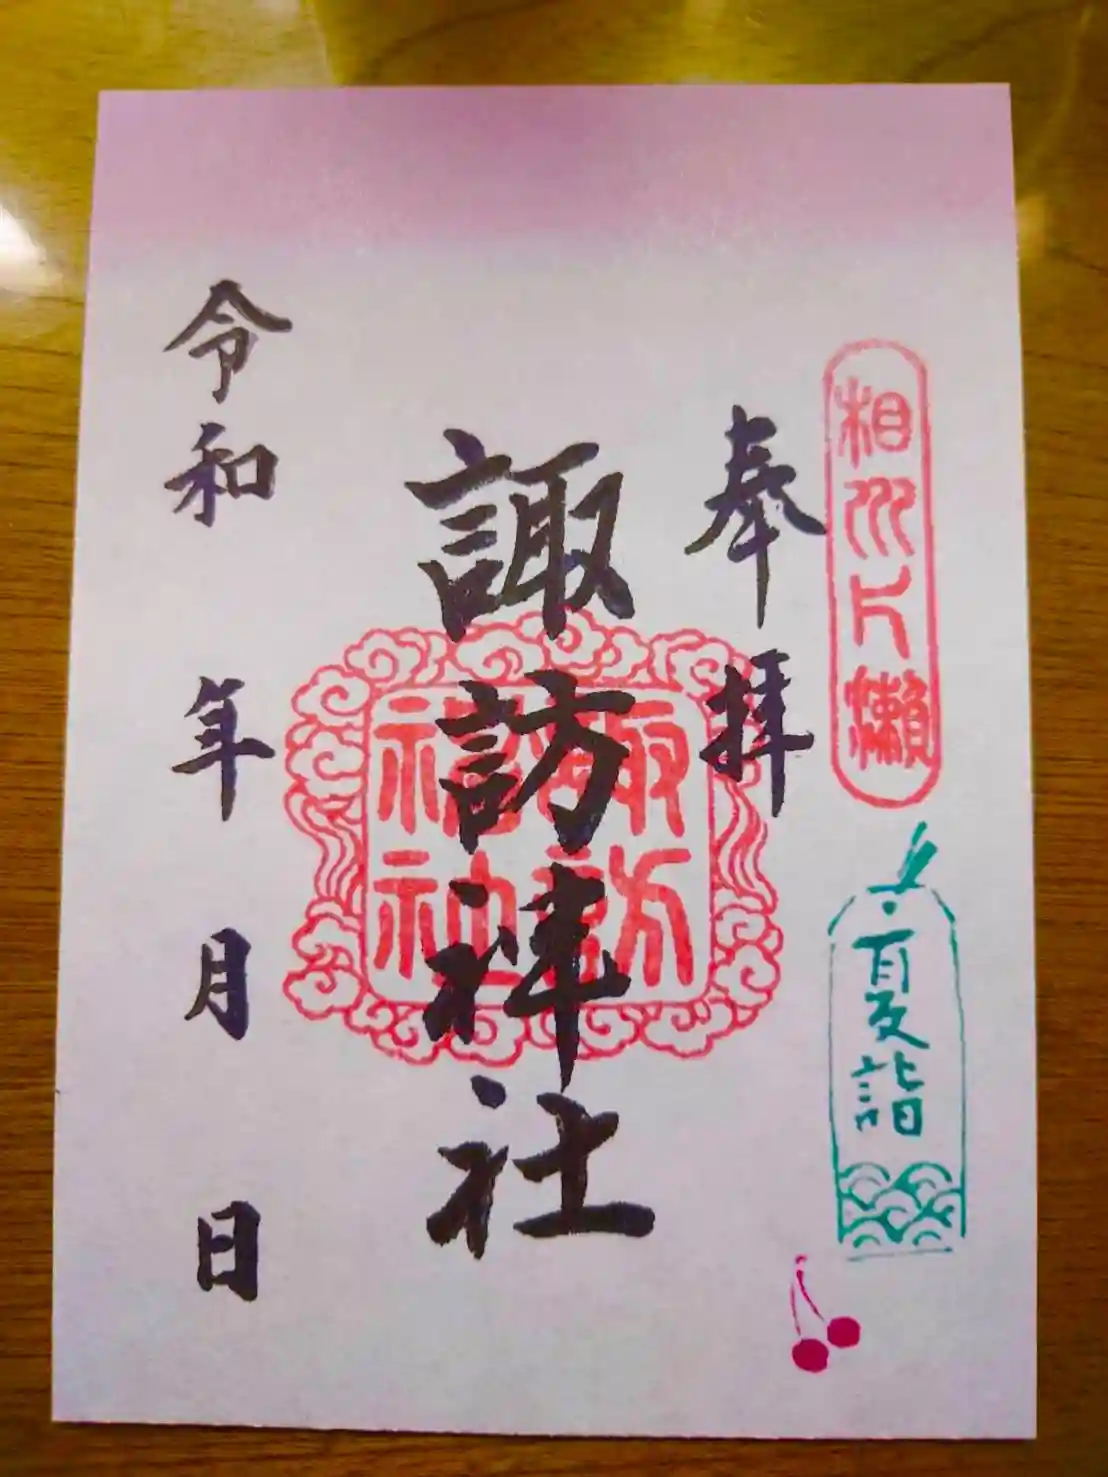 相州片瀬
夏詣
奉拝
諏訪神社
諏訪
神社
令和 年 月 日